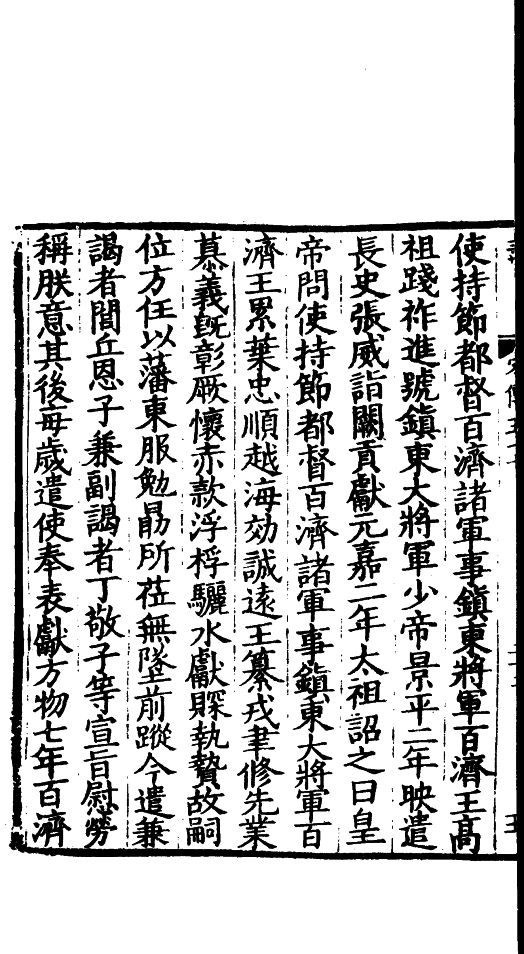 使持節都督百濟諸軍事鎮東將軍百濟王高
祖踐祚進號鎮東大將軍少帝景平二年映遣
長史張威詣闕貢獻元嘉二年太祖詔之曰皇
帝問使持節都督百濟諸軍事鎮東大將軍百
濟王累葉忠順越海効誠遠王纂戎聿修先業
慕義旣彰厥懷赤款浮桴驪水獻賝執贄故嗣
位方任以藩東服勉勗所莅無墜前蹤今遣兼
謁者閭丘恩子兼副謁者丁敬子等宣旨慰勞
稱朕意其後每歲遣使奉表獻方物七年百濟